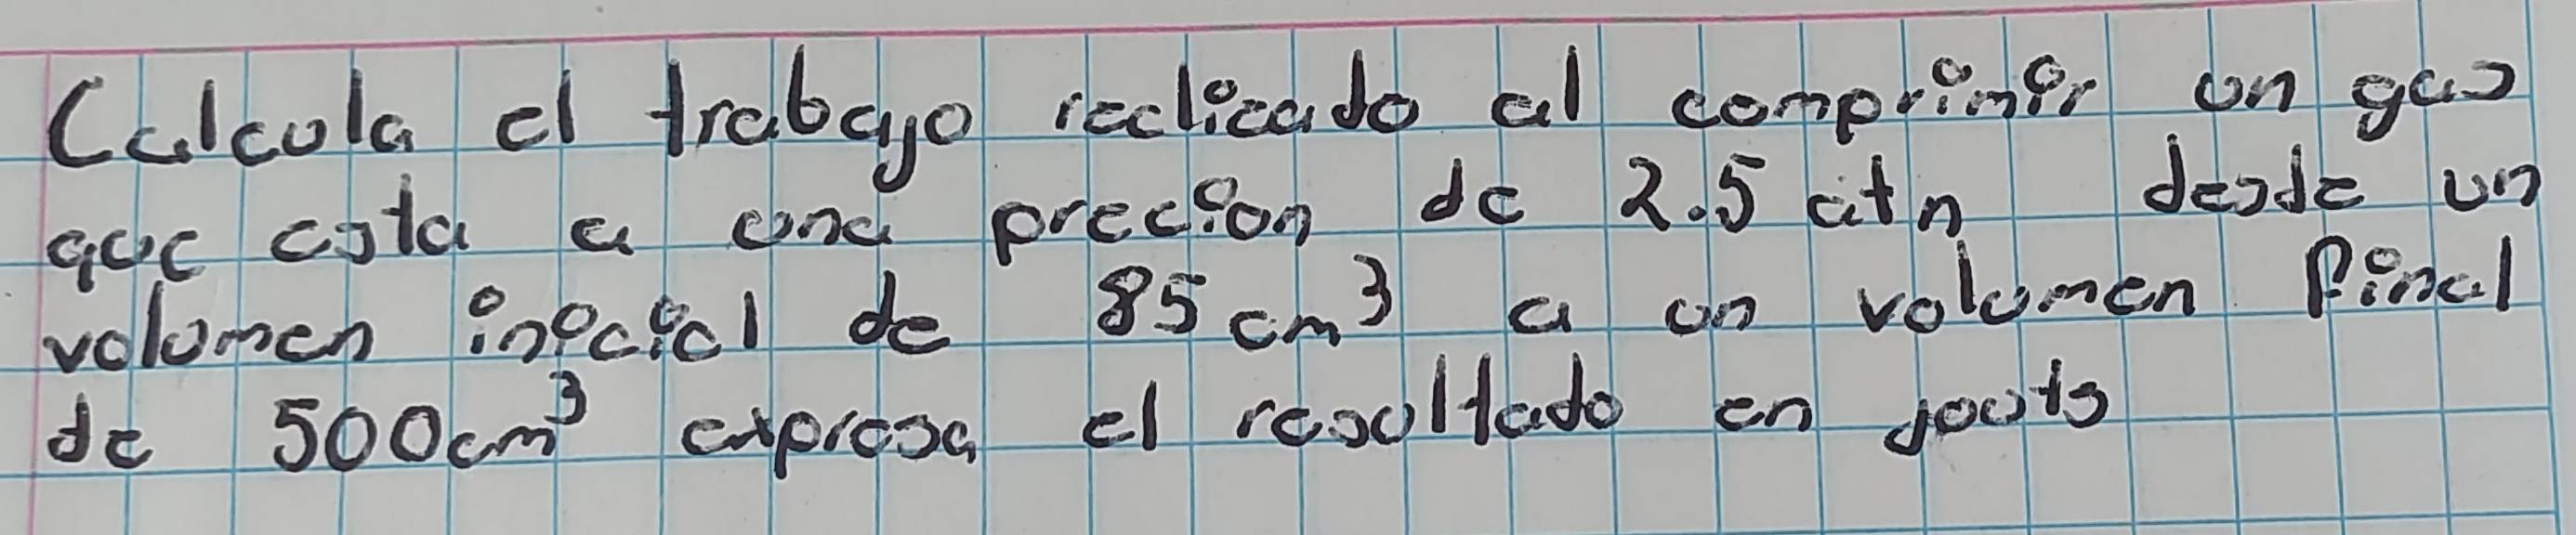 Calcula el trabajo realicado al comprimir un gas
que esta a una precion de 2.5 atn desde un
volumen inicial de 85 cm³ a un volumen final
de 500cm³ expresa el resultado en jouts